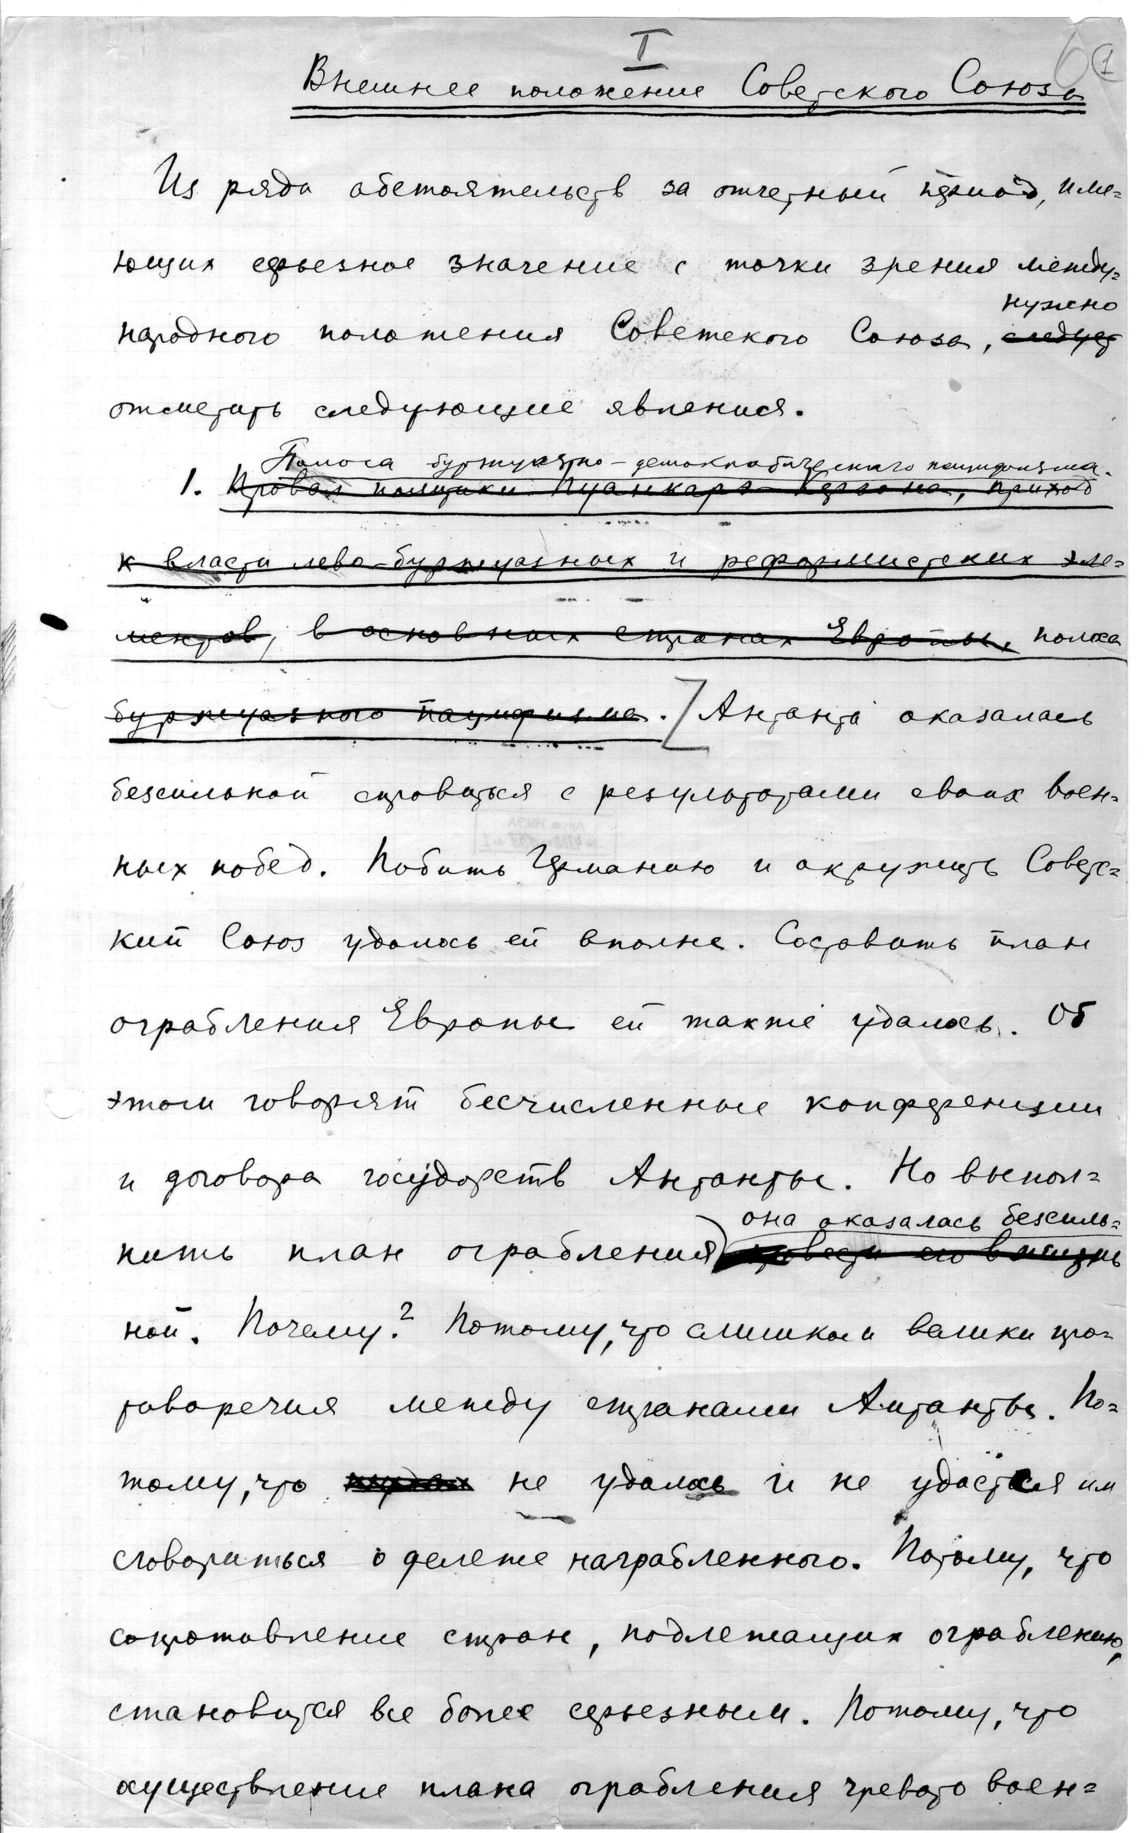 I
6
1
Внешнее положение Советского Союза
Из ряда обстоятельств за отчетный период, име=
ющих серьезное значение с точки зрения между=
нужно
народного положения Советского Союза, следует
отметить следующие явления.
Полоса буржуазно-демократического пацифизма.
1. Провал политики Пуанкаре-Керзона, приход
к власти лево-буржуазных и реформистских эле=
ментов, в основных странах Европы, полоса
буржуазного пацифизма. [Антанта оказалась
безсильной справиться с результатами своих воен=
ных побед. Побить Германию и окружить Советс=
кий Союз удалось ей вполне. Составить план
ограбления Европы ей также удалось. Об
этом говорят бесчисленные конференции
и договора государств Антанты. Но выпол=
она оказалась безсиль=
нить план ограбления провести его в жизнь
ной. Почему? Потому, что слишком велики про=
товоречия между странами Антанты. По=
тому, что не удалось и не удастся им
сговориться о дележе награбленного. Потому, что
сопротивление стран, подлежащих ограблению,
становится все более серьезным. Потому, что
осуществление плана ограбления чревато воен=